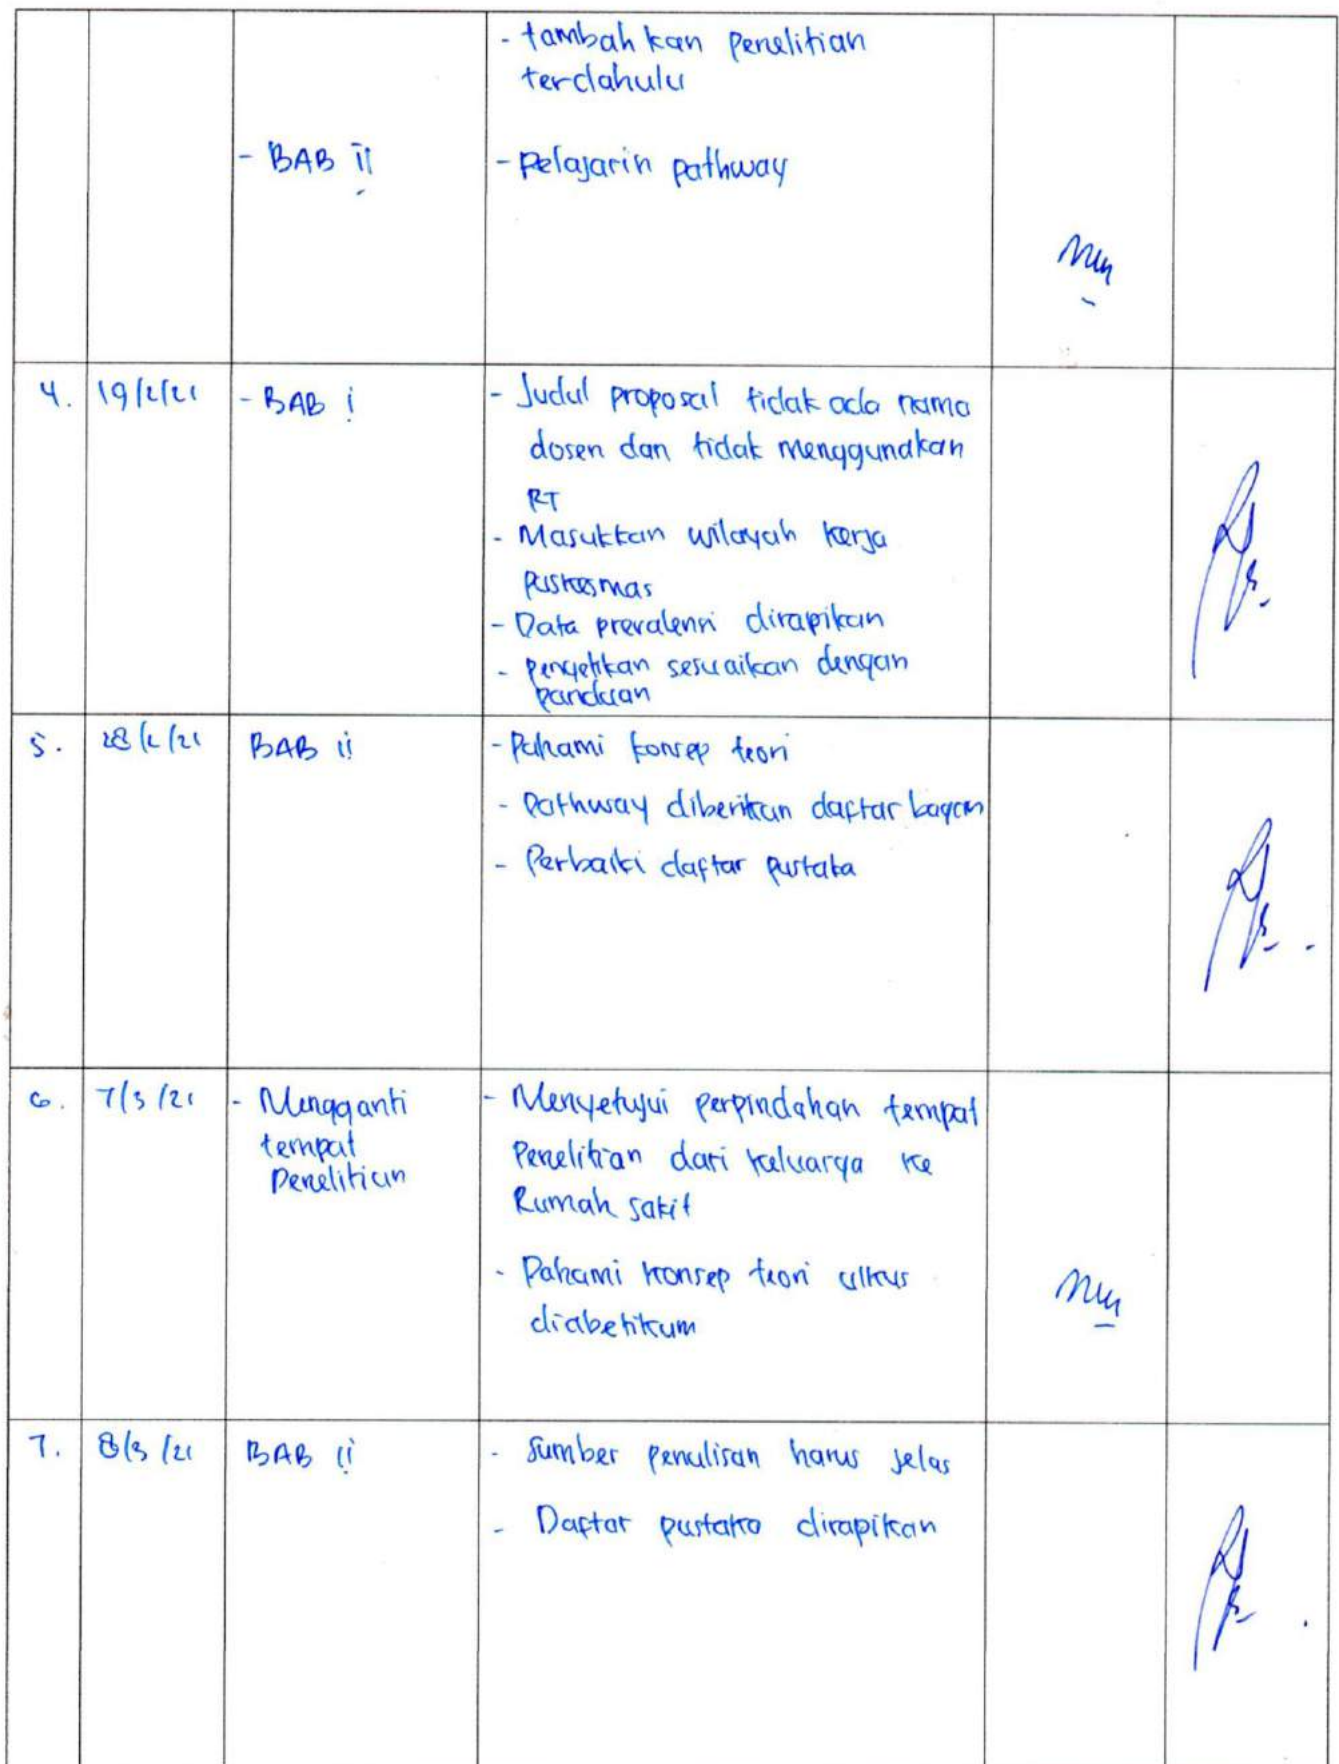 - tambahkan penelitian
terdahulu
- BAB II
- Pelajarin pathway
4. 19/2/21 - BAB I
- Judul proposal tidak ada nama
dosen dan tidak menggunakan
RT
- Masukkan wilayah kerja
puskesmas
- Data prevalensi dirapikan
- pengetikan sesuaikan dengan
panduan
5. 28/2/21 BAB II
- Pahami konsep teori
- Pathway diberikan daftar bagan
- Perbaiki daftar pustaka
6. 7/3/21 - Mengganti
tempat
Penelitian
- Menyetujui perpindahan tempat
Penelitian dari keluarga ke
Rumah sakit
- Pahami konsep teori ulkus
diabetikum
7. 8/3/21 BAB II
- Sumber penulisan harus jelas
- Daftar pustaka dirapikan